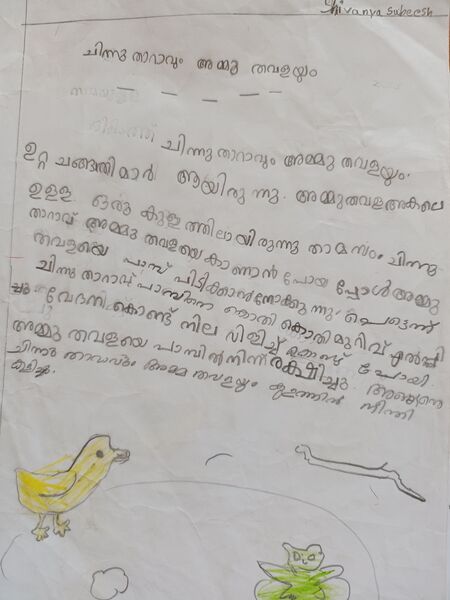 Shivanya Subeesh
ചിന്നു താറാവും അമ്മു തവളയും
ചിന്നു താറാവും അമ്മു തവളയും.
ഉറ്റ ചങ്ങാതിമാർ ആയിരു ന്നു. അമ്മുതവള അകലെ
ഉള്ള ഒരു കുള ത്തിലായിരുന്നു താമസം. ചിന്നു
താറാവ് അമ്മു തവളയെ കാണാൻ പോയ പ്പോൾ അമ്മു
തവളയെ പാമ്പ് പിടിക്കാൻ നോക്കു ന്നു. പെട്ടെന്ന്
ചിന്നു താറാവ് പാമ്പിനെ കൊത്തി കൊത്തി മുറിവ് ഏൽപ്പി
ച്ചു. വേദന കൊണ്ട് നില വിളിച്ച് കൊണ്ട് പോയി.
അമ്മു തവളയെ പാമ്പിൽ നിന്ന് രക്ഷിച്ചു. അങ്ങനെ
ചിന്നു താറാവും അമ്മു തവളയും കുളത്തിൽ നീന്തി
കളിച്ചു.